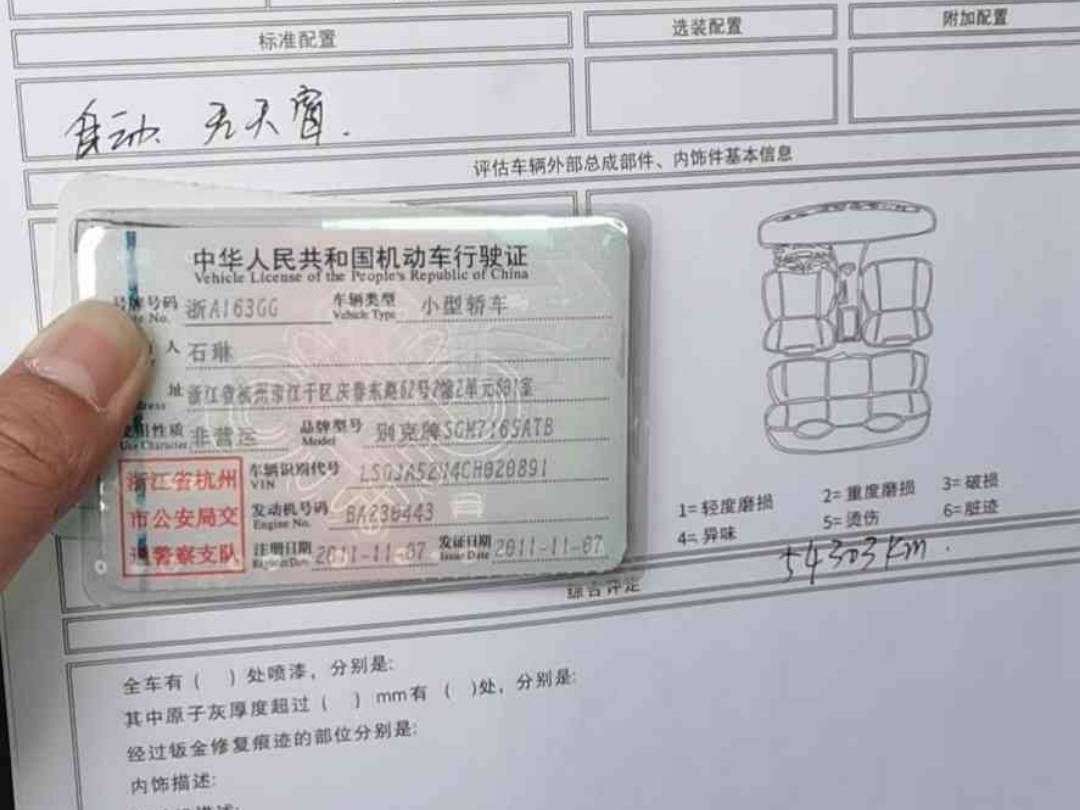 标准配置
选装配置
附加配置
自动 无天窗.
评估车辆外部总成部件、内饰件基本信息
中华人民共和国机动车行驶证
Vehicle License of the People's Republic of China
号牌号码 浙A163GG 车辆类型 小型轿车
No. Vehicle Type
人 石琳
址 浙江省杭州市江干区庆春东路62号2幢2单元501室
使用性质 非营运 品牌型号 别克牌SGM7165ATB
Use Character Model
车辆识别代号 LSGJA52H4CH020891
VIN
发动机号码 BA230443
Engine No.
注册日期 2011-11-07 发证日期 2011-11-07
Register Date Issue Date
浙江省杭州
市公安局交
通警察支队
1=轻度磨损
2=重度磨损
3=破损
4=异味
5=烫伤
6=脏迹
54303km.
综合评定
全车有( )处喷漆，分别是:
其中原子灰厚度超过( )mm有( )处，分别是:
经过钣金修复痕迹的部位分别是:
内饰描述: